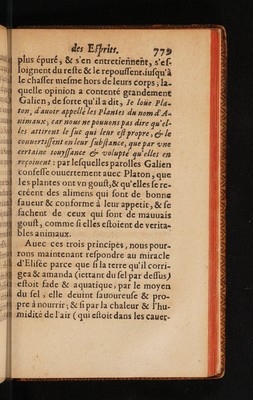 des Esprits. 779
plus épuré, & s'en entretiennēt, s'es-
loignent du reste & le repoussent jusqu'à
le chasser mesme hors de leurs corps; la-
quelle opinion a contenté grandement
Galien, de sorte qu'il a dit, Ie louë Pla-
ton, d'auoir appellé les Plantes du nom d'A-
nimaux; car nous ne pouuons pas dire qu'el-
les attirent le suc qui leur est propre, & le
conuertissent en leur substance, que par vne
certaine iouyssance & volupté qu'elles en
reçoiuent: par lesquelles parolles Galien
confesse ouuertement auec Platon, que
les plantes ont vn goust, & qu'elles se re-
créent des alimens qui sont de bonne
saueur & conforme à leur appetit, & se
fachent de ceux qui sont de mauuais
goust, comme si elles estoient de verita-
bles animaux.
Auec ces trois principes, nous pour-
rons maintenant respondre au miracle
d'Elisée parce que si la terre qu'il corri-
gea & amanda (iettant du sel par dessus)
estoit fade & aquatique, par le moyen
du sel, elle deuint sauoureuse & pro-
pre à nourrir; & si par la chaleur & l'hu-
midité de l'air (qui estoit dans les cauer-